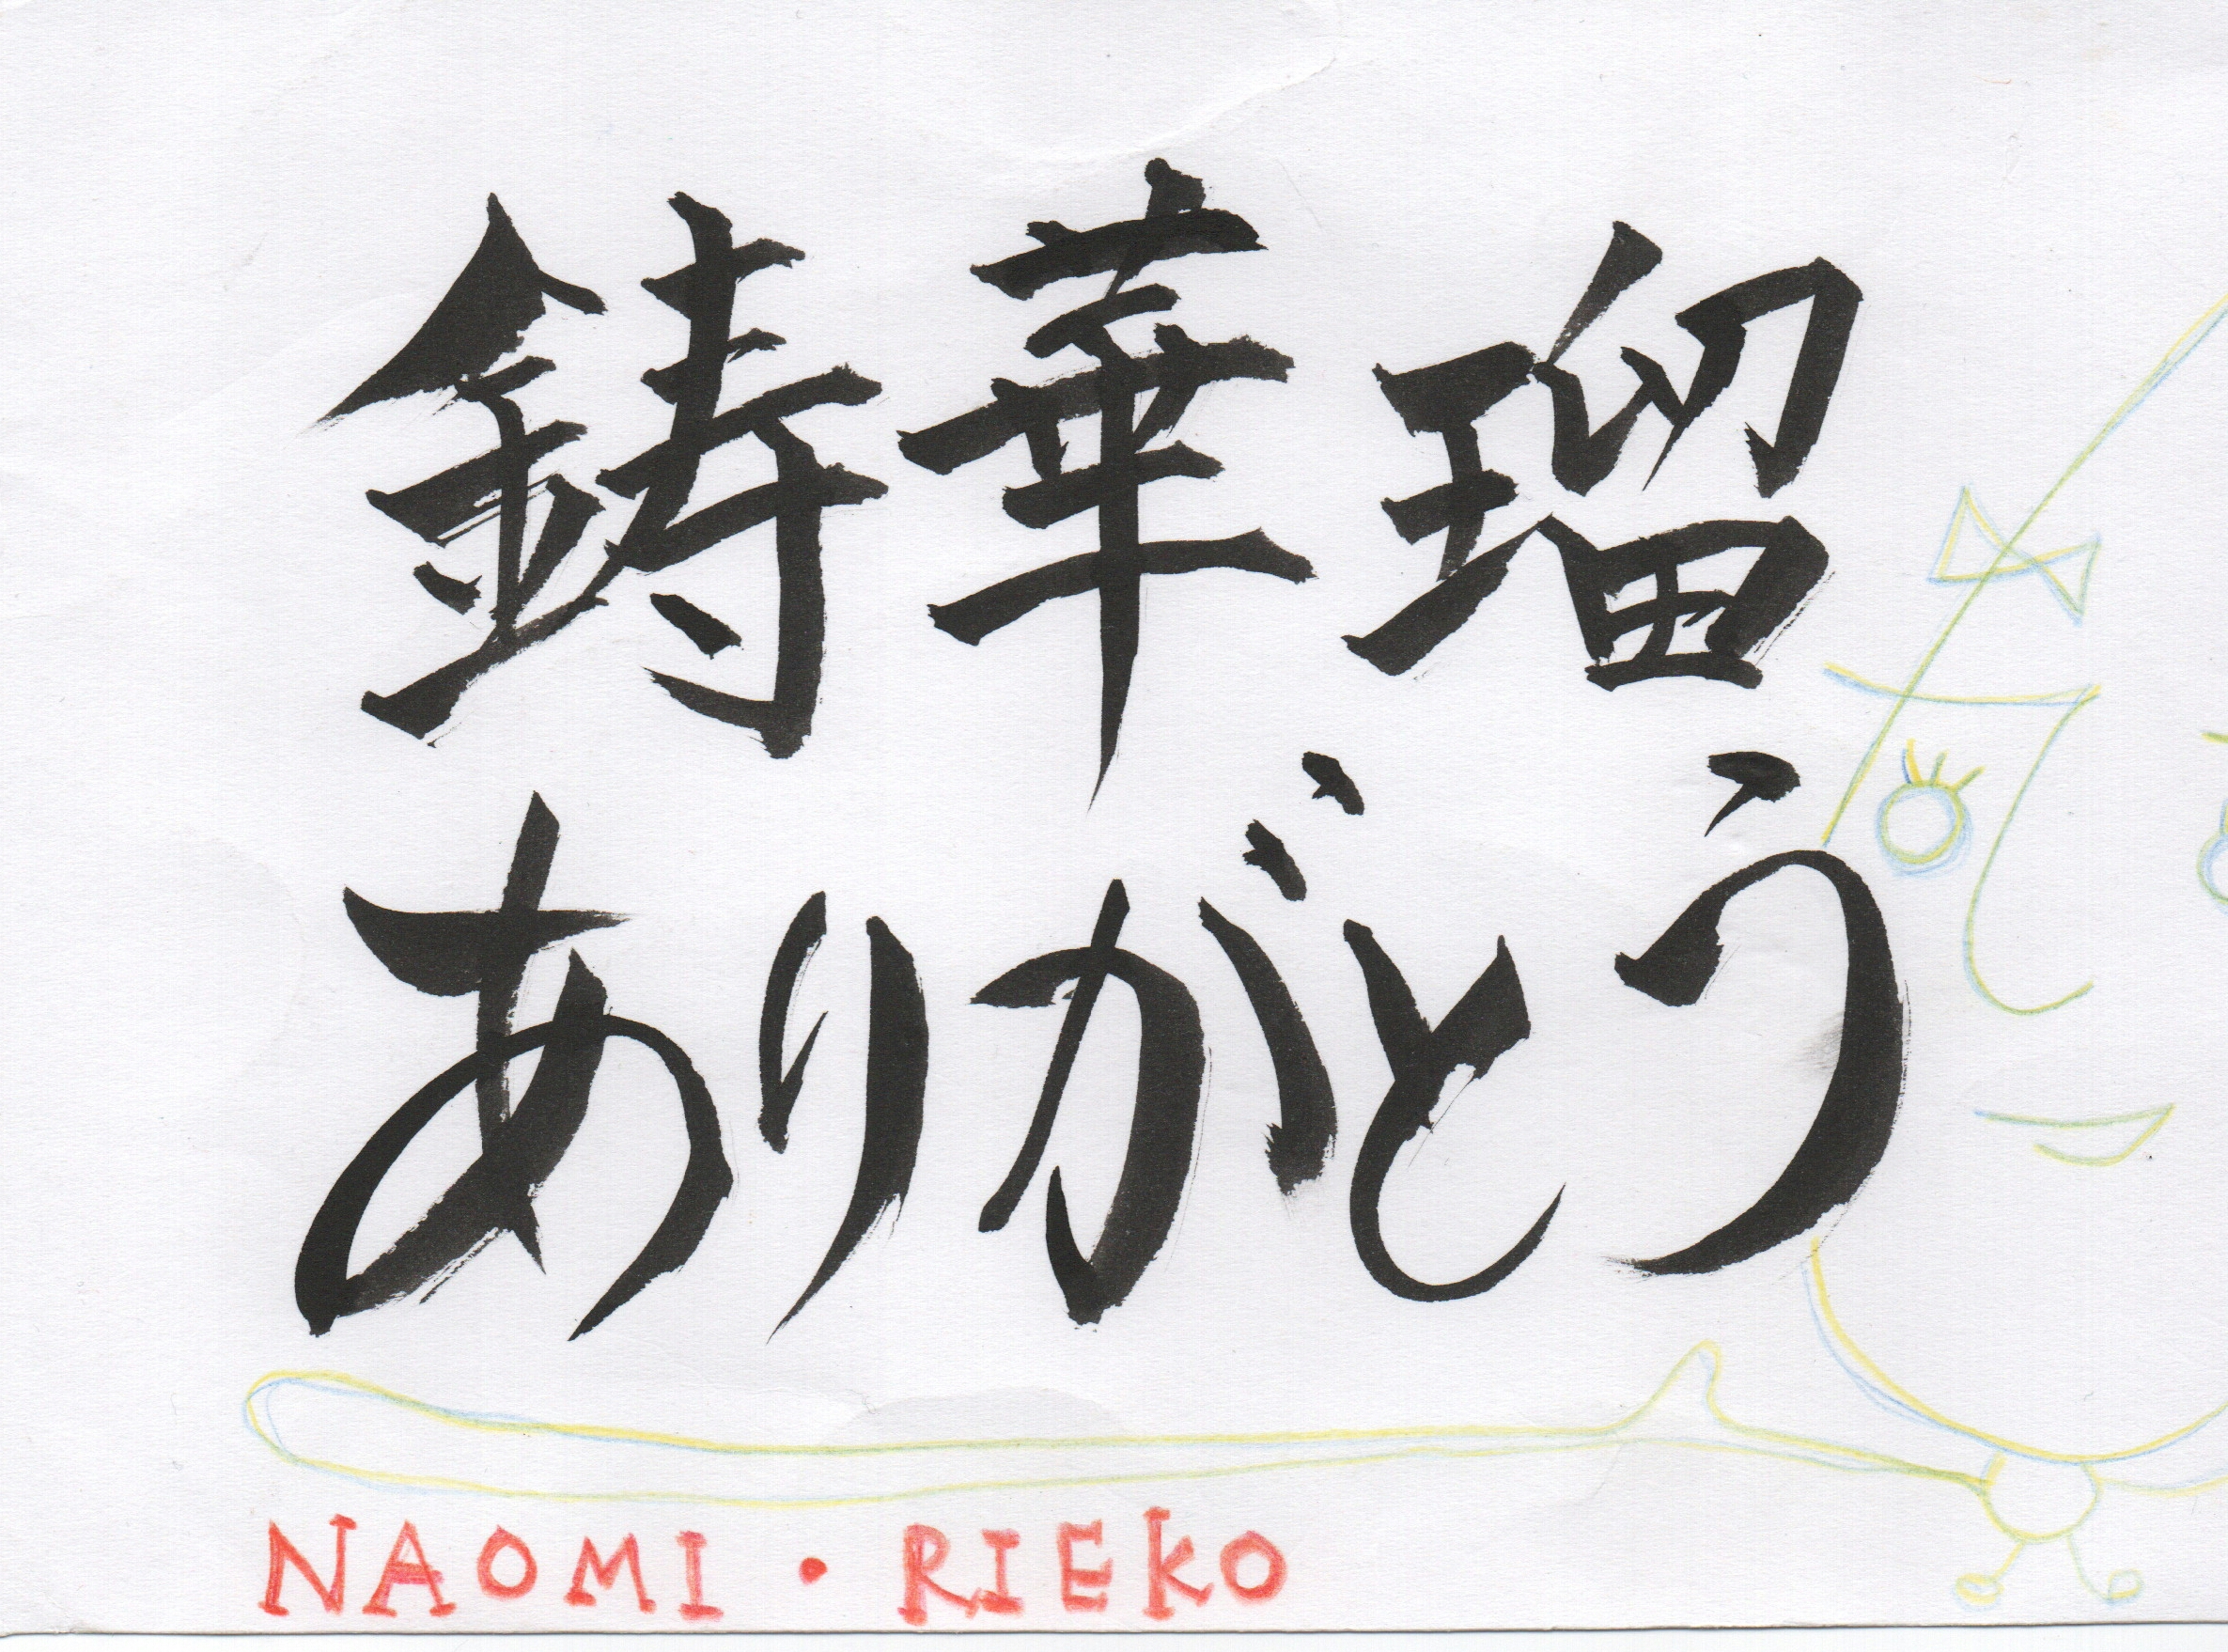 鋳華瑠
ありがとう
NAOMI・RIEKO